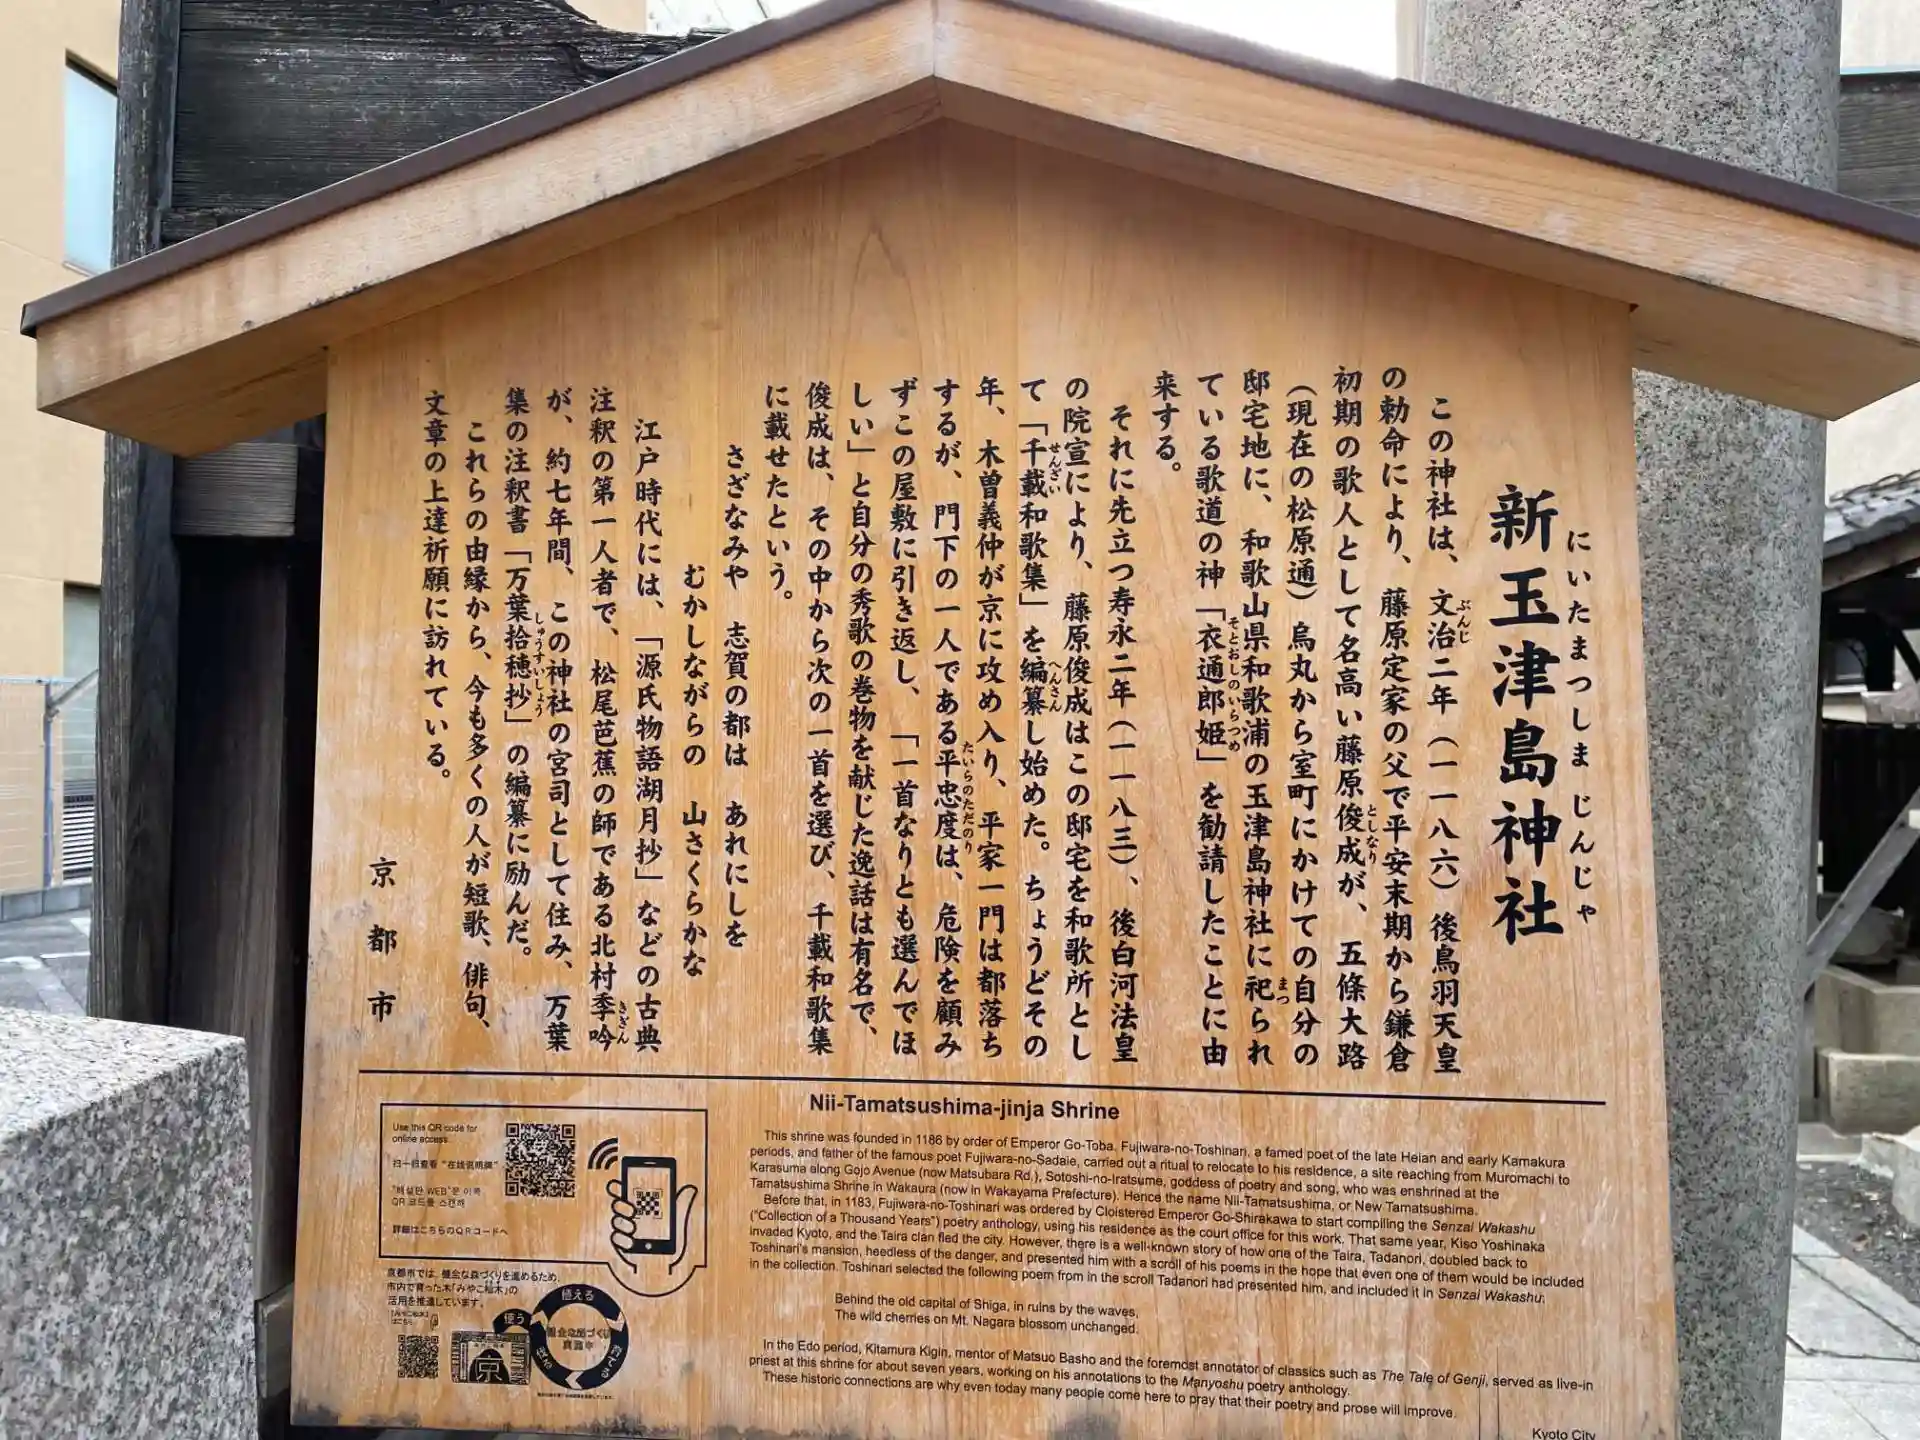 新玉津島神社
にいたまつしまじんじゃ
この神社は、文治二年（一一八六）後鳥羽天皇
ぶんじ
の勅命により、藤原定家の父で平安末期から鎌倉
初期の歌人として名高い藤原俊成が、五條大路
としなり
（現在の松原通）烏丸から室町にかけての自分の
邸宅地に、和歌山県和歌浦の玉津島神社に祀られ
まつ
ている歌道の神「衣通郎姫」を勧請したことに由
そとおしのいらつめ
来する。
それに先立つ寿永二年（一一八三）、後白河法皇
の院宣により、藤原俊成はこの邸宅を和歌所とし
て「千載和歌集」を編纂し始めた。ちょうどその
せんざい
へんさん
年、木曽義仲が京に攻め入り、平家一門は都落ち
するが、門下の一人である平忠度は、危険を顧み
たいらのただのり
ずこの屋敷に引き返し、「一首なりとも選んでほ
しい」と自分の秀歌の巻物を献じた逸話は有名で、
俊成は、その中から次の一首を選び、千載和歌集
に載せたという。
さざなみや 志賀の都は あれにしを
むかしながらの 山さくらかな
江戸時代には、「源氏物語湖月抄」などの古典
注釈の第一人者で、松尾芭蕉の師である北村季吟
きぎん
が、約七年間、この神社の宮司として住み、万葉
集の注釈書「万葉拾穂抄」の編纂に励んだ。
しゅうすいしょう
これらの由縁から、今も多くの人が短歌、俳句、
文章の上達祈願に訪れている。
京都市
Nii-Tamatsushima-jinja Shrine
This shrine was founded in 1186 by order of Emperor Go-Toba. Fujiwara-no-Toshinari, a famed poet of the late Heian and early Kamakura
periods, and father of the famous poet Fujiwara-no-Sadaie, carried out a ritual to relocate to his residence, a site reaching from Muromachi to
Karasuma along Gojo Avenue (now Matsubara Rd.), Sotoshi-no-Iratsume, goddess of poetry and song, who was enshrined at the
Tamatsushima Shrine in Wakaura (now in Wakayama Prefecture). Hence the name Nii-Tamatsushima, or New Tamatsushima.
Before that, in 1183, Fujiwara-no-Toshinari was ordered by Cloistered Emperor Go-Shirakawa to start compiling the Senzai Wakashu
("Collection of a Thousand Years") poetry anthology, using his residence as the court office for this work. That same year, Kiso Yoshinaka
invaded Kyoto, and the Taira clan fled the city. However, there is a well-known story of how one of the Taira, Tadanori, doubled back to
Toshinari's mansion, heedless of the danger, and presented him with a scroll of his poems in the hope that even one of them would be included
in the collection. Toshinari selected the following poem from in the scroll Tadanori had presented him, and included it in Senzai Wakashu:
Behind the old capital of Shiga, in ruins by the waves,
The wild cherries on Mt. Nagara blossom unchanged.
In the Edo period, Kitamura Kigin, mentor of Matsuo Basho and the foremost annotator of classics such as The Tale of Genji, served as live-in
priest at this shrine for about seven years, working on his annotations to the Manyoshu poetry anthology.
These historic connections are why even today many people come here to pray that their poetry and prose will improve.
Kyoto City
Use this QR code for
online access.
扫一扫查看"在线说明牌"
"해설판 WEB"은 이쪽
QR 코드를 스캔해
詳細はこちらのQRコードへ
京都市では、健全な森づくりを進めるため、
市内で育った木「みやこ杣木」の
活用を推進しています。
「みやこ杣木」
はこちら
植える
育てる
使う
健全な森づくり
実施中
京